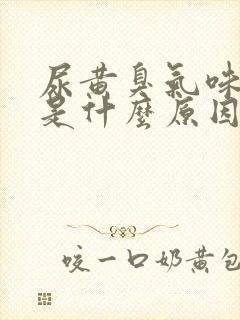 尿黄臭氣味
是什麼原因
咬一口奶黄包